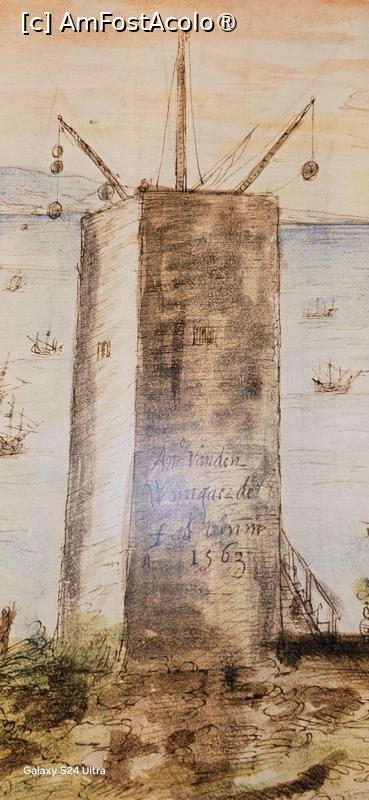 [c] AmFostAcolo®
Anº Vanden
Wyngaerde
f ad Vivum
1563
Galaxy S24 Ultra